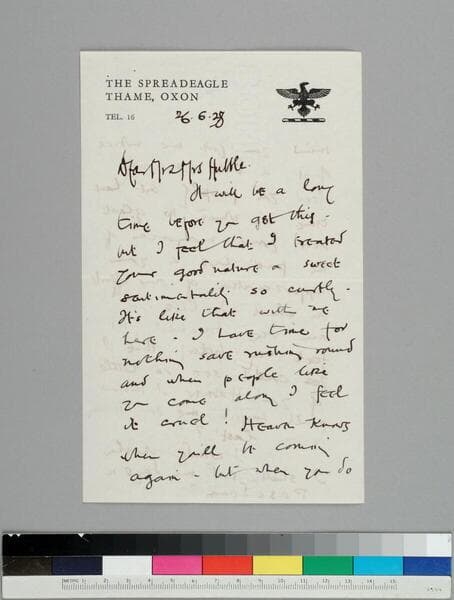 THE SPREADEAGLE
THAME, OXON
TEL. 16
26.6.28
Dear Mr & Mrs Hubble.
It will be a long
time before you get this -
but I feel that I treated
your good nature & sweet
sentimentality so curtly.
It's like that with me
here - I have time for
nothing save rushing round
and when people like
you come along I feel
it cruel! Heaven knows
when you'll be coming
again - but when you do